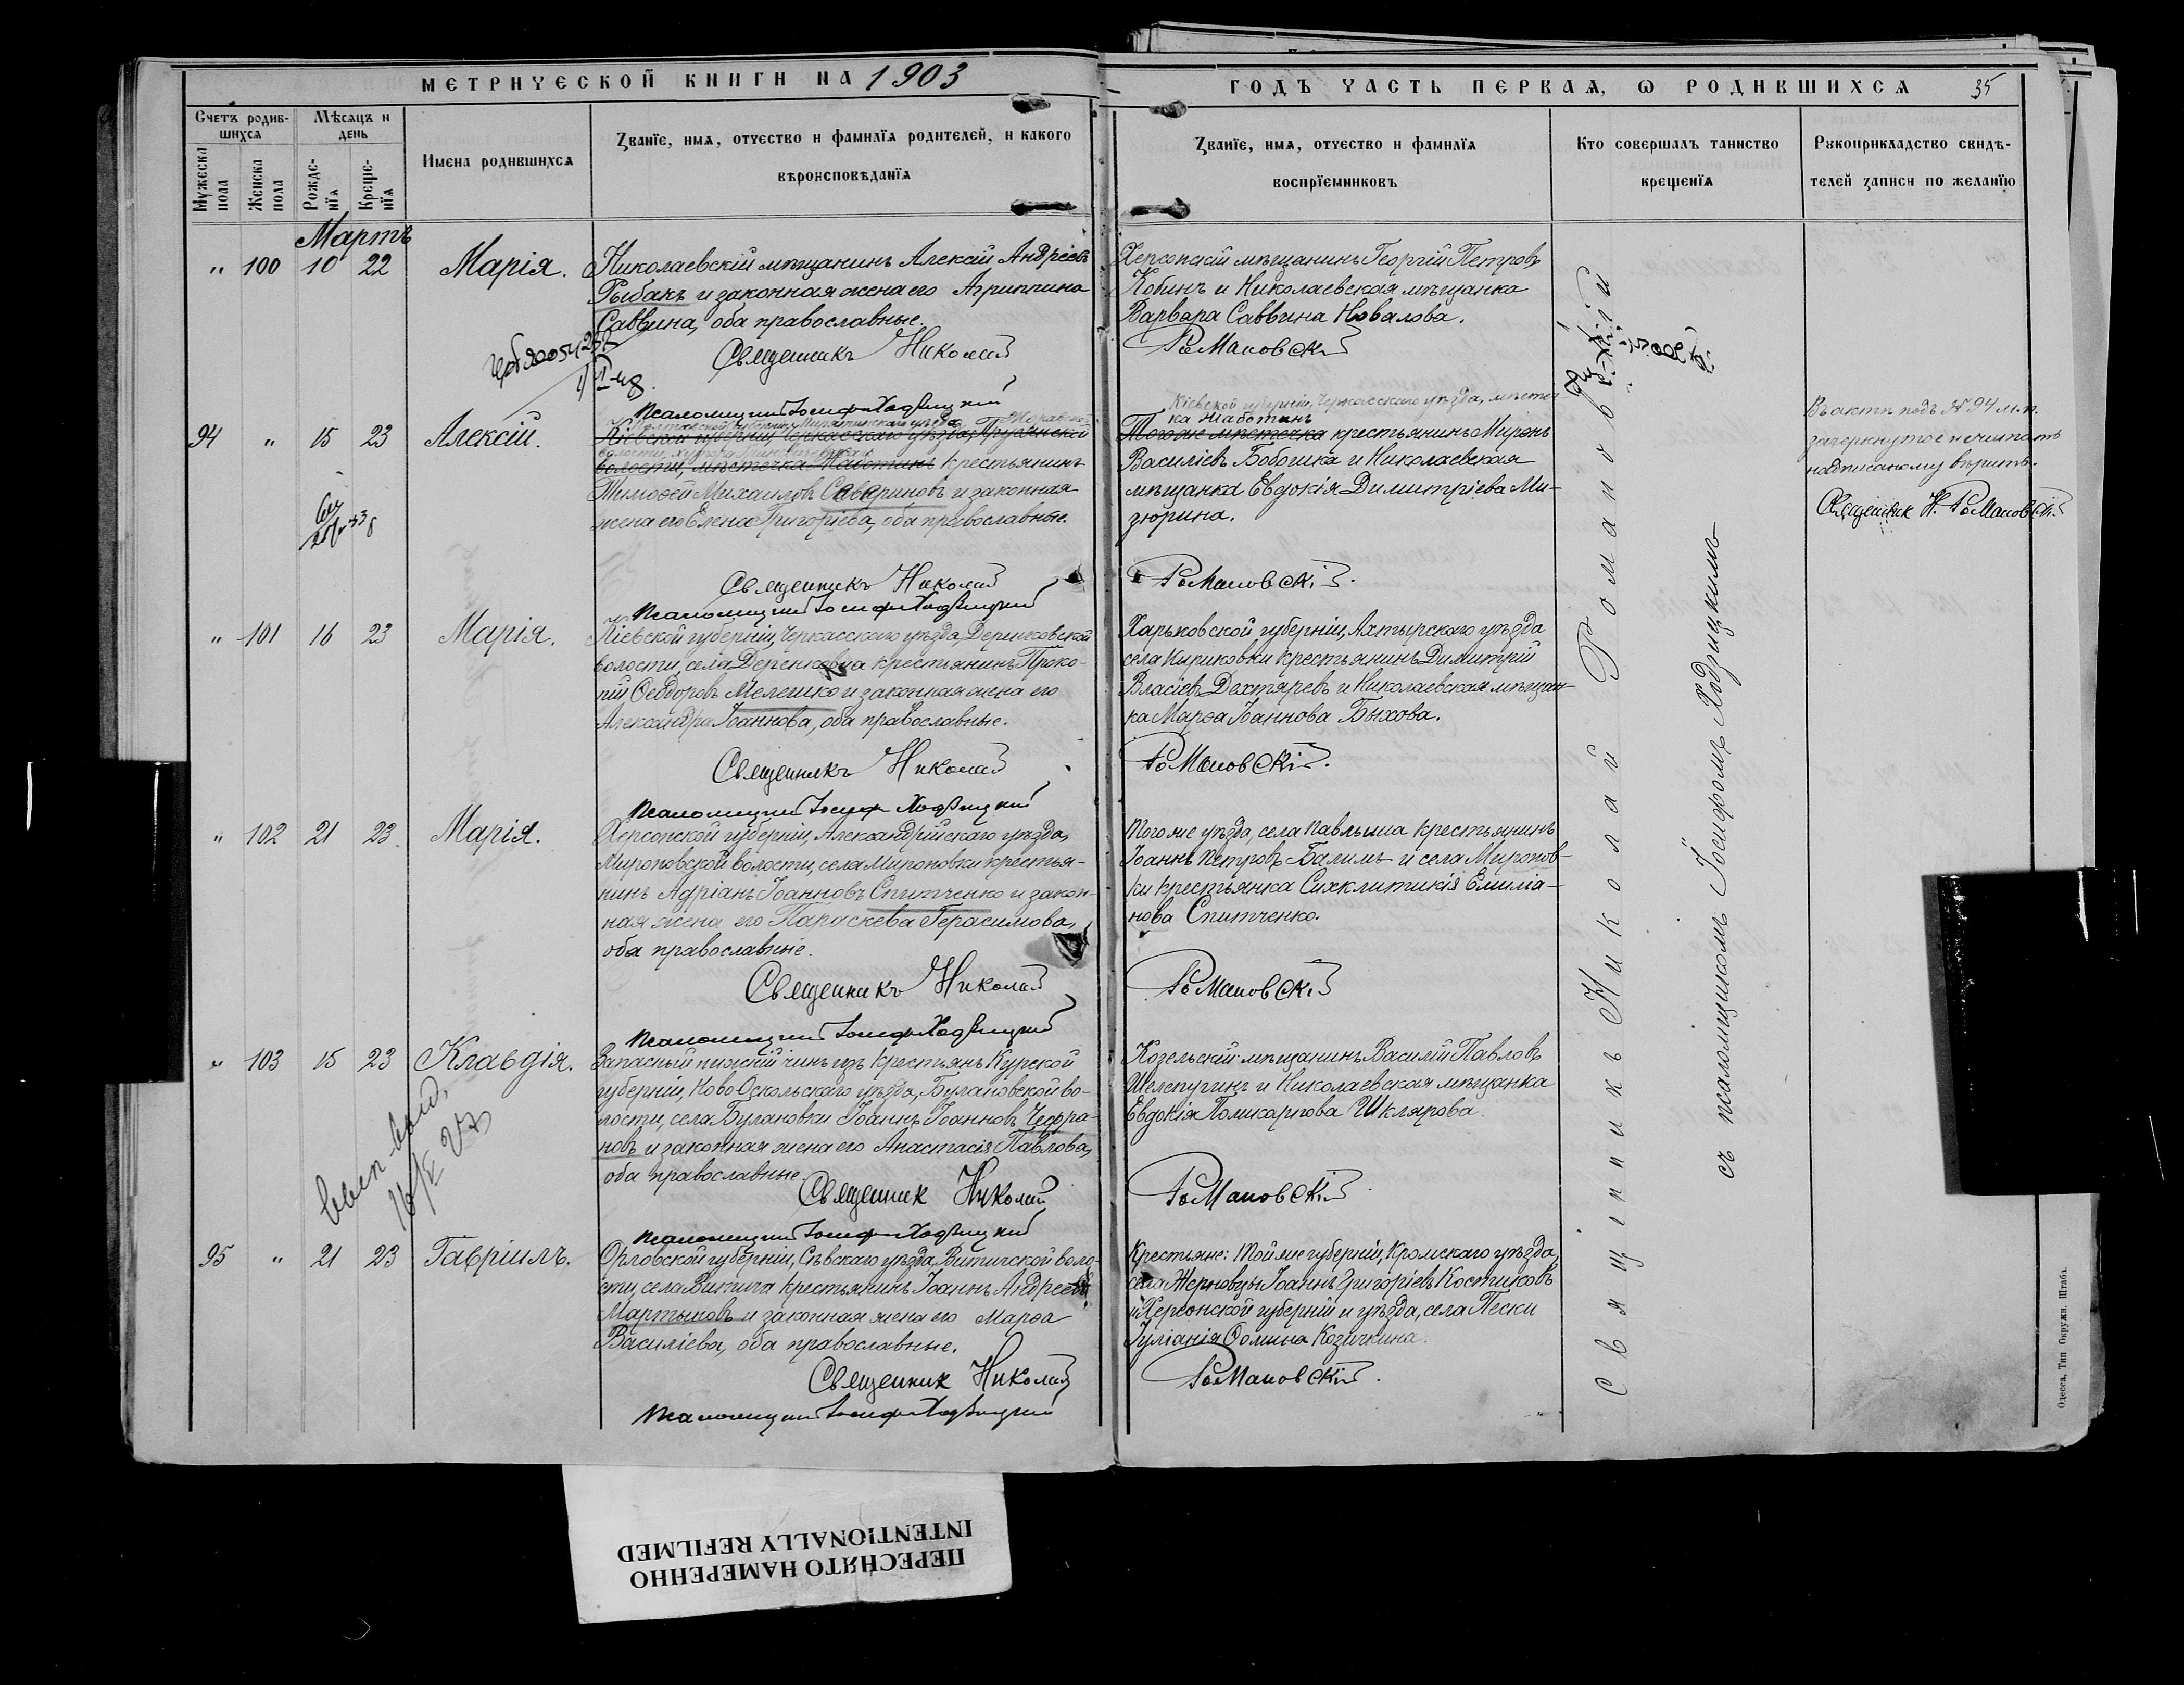 МЕТРИЧЕСКОЙ КНИГИ НА 1903
ГОДЪ ЧАСТЬ ПЕРВАЯ, Ѡ РОДИВШИХСЯ 35
Счетъ родив-
шихся
Мѣсяцъ и
день
Мужеска
пола
Женска
пола
Рожде-
нїя
Креще-
нїя
Имена родившихся
Званїе, имя, отчество и фамилїя родителей, и какого
вѣроисповѣданїя
Званїе, имя, отчество и фамилїя
воспрїемниковъ
Кто совершалъ таинство
крещенїя
Рукоприкладство свидѣ-
телей записи по желанїю
Мартъ
" 100 10 22 Марія.
Николаевскій мѣщанинъ Алексій Андреевъ
Рыбакъ и законная жена его Агриппина
Саввина, оба православные.
Священникъ Николай
Псаломщикъ Іосифъ Ходзицкій
Херсонскій мѣщанинъ Георгій Петровъ
Кобинъ и Николаевская мѣщанка
Варвара Саввина Новалова.
Романовскій
94 " 15 23 Алексій.
Полтавской губерніи, Пирятинскаго уѣзда,
Кіевской губерніи, Черкасскаго уѣзда,
волости, хутора
волости, мѣстечка Жаботинъ крестьянинъ
Тимоѳей Михаиловъ Савариновъ и законная
жена его Елена Григоріева, оба православные.
Священникъ Николай
Псаломщикъ Іосифъ Ходзицкій
Кіевской губерніи, Черкасскаго уѣзда, мѣстеч
ка Жаботинъ
Того же мѣстечка крестьянинъ Миронъ
Василіевъ Бобошка и Николаевская
мѣщанка Евдокія Димитріева Ми-
зюрина.
Романовскій.
Въ актѣ подъ № 94 м.п.
зачеркнутое не читать
надписаному вѣрить.
Священник Н. Романовскій.
" 101 16 23 Марія.
Кіевской губерніи, Черкасскаго уѣзда, Деренковской
волости, села Деренковца крестьянинъ Проко-
пій Ѳеодоровъ Мелешко и законная жена его
Александра Іоаннова, оба православные.
Священникъ Николай
Псаломщикъ Іосифъ Ходзицкій
Харьковской губерніи, Ахтырскаго уѣзда
села Кириковки крестьянинъ Димитрій
Власіевъ Дехтяревъ и Николаевская мѣщан-
ка Марѳа Іоаннова Быхова.
Романовскій.
" 102 21 23 Марія.
Херсонской губерніи, Александрійскаго уѣзда,
Мироновской волости, села Мироновки крестья-
нинъ Адріанъ Іоанновъ Спитченко и закон-
ная жена его Параскева Герасимова,
оба православные.
Священникъ Николай
Псаломщикъ Іосифъ Ходзицкій
Того же уѣзда, села Павлыша крестьянинъ
Іоаннъ Петровъ Балимъ и села Миронов-
ки крестьянка Синклитикія Емиліа-
нова Спитченко.
Романовскій
" 103 15 23 Клавдія.
Запасный нижній чинъ изъ крестьянъ Курской
губерніи, Ново-Оскольскаго уѣзда, Булановской во-
лости, села Булановки Іоаннъ Іоанновъ Чефра-
новъ и законная жена его Анастасія Павлова,
оба православные.
Священник Николай
Псаломщикъ Іосифъ Ходзицкій
Козельскій мѣщанинъ Василій Павловъ
Шелепугинъ и Николаевская мѣщанка
Евдокія Поликарпова Шклярова.
Романовскій
95 " 21 23 Гавріилъ.
Орловской губерніи, Сѣвскаго уѣзда, Витичской воло-
сти, села Витича крестьянинъ Іоаннъ Андреевъ
Мартыновъ и законная жена его Марѳа
Василіева, оба православные.
Священник Николай
Псаломщикъ Іосифъ Ходзицкій
Крестьяне: Той же губерніи, Кромскаго уѣзда,
села Жерновцы Іоаннъ Григоріевъ Костиковъ
и Херсонской губерніи и уѣзда, села Пески
Іуліанія Ѳомина Козичкина.
Романовскій.
Священникъ Николай Романовскій
съ псаломщикомъ Іосифомъ Ходзицкимъ
Одесса, Тип Окружн. Штаба.
ПЕРЕСНЯТО НАМЕРЕННО
INTENTIONALLY REFILMED